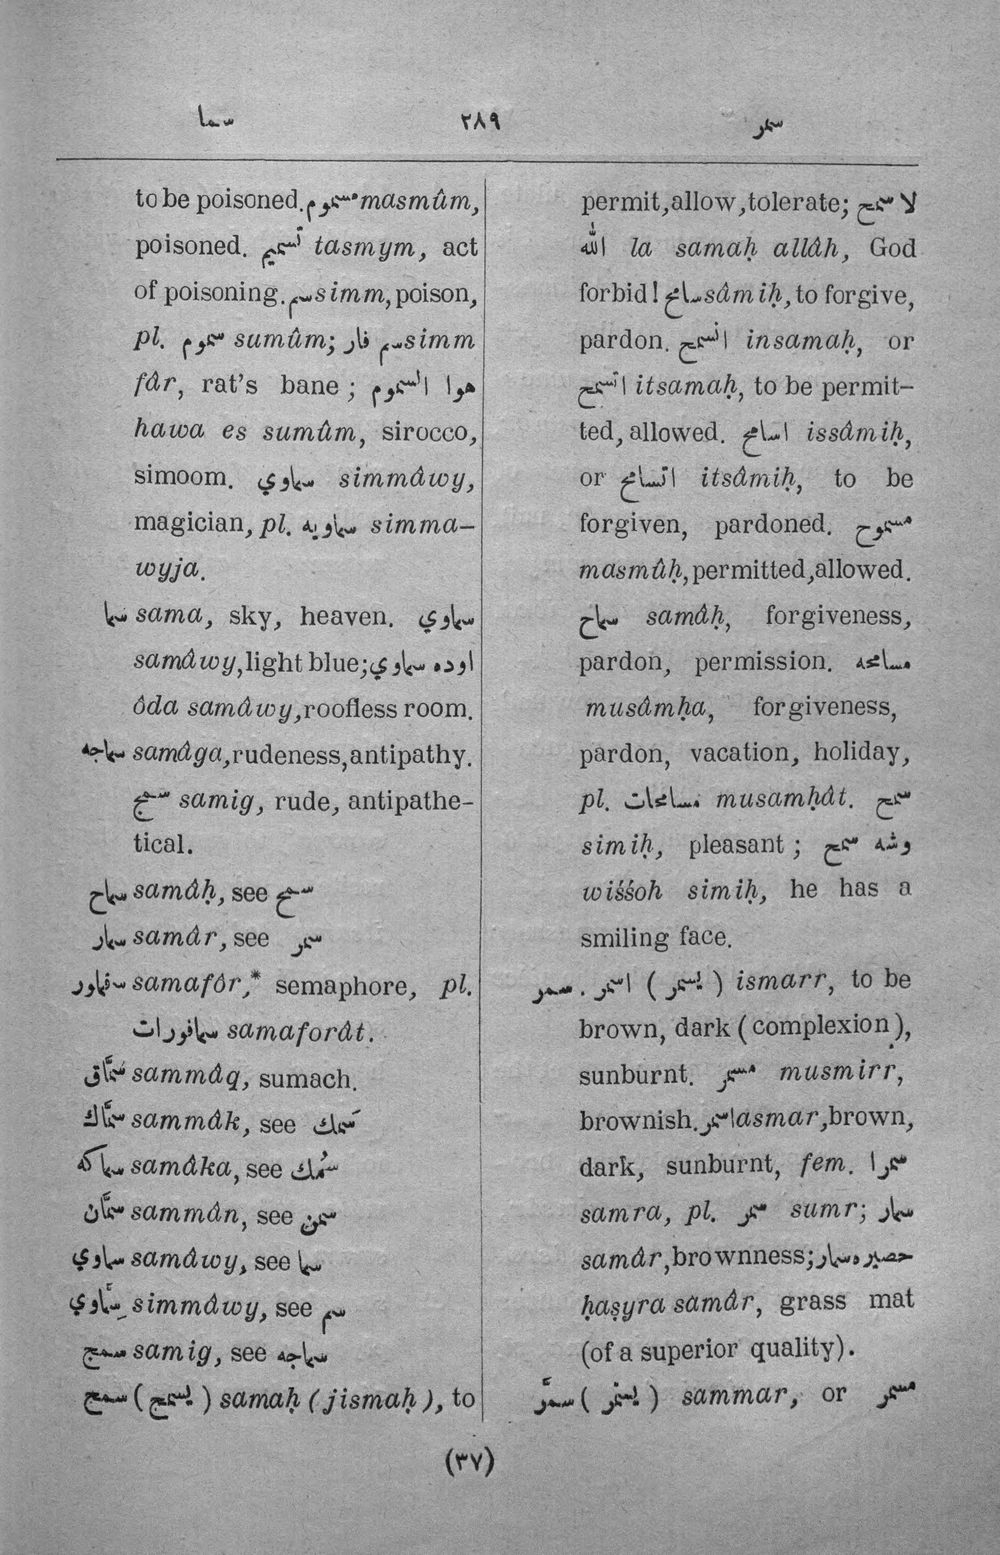 سما ٢٨٩ سمر
to be poisoned. مسموم masmûm,
poisoned. تسميم tasmym, act
of poisoning. سم simm, poison,
pl. سموم sumûm; سم فار simm
fâr, rat's bane; هوا السموم
hawa es sumûm, sirocco,
simoom. سماوي simmâwy,
magician, pl. سماويه simma-
wyja.
سما sama, sky, heaven. سماوي
samâwy, light blue; اوده سماوي
ôda samâwy, roofless room.
سماجه samâga, rudeness, antipathy.
سمج samig, rude, antipathe-
tical.
سماح samâḥ, see سمح
سمار samâr, see سمر
سمافور samafôr,* semaphore, pl.
سمافورات samaforât.
سُمَّاق sammâq, sumach.
سمَّاك sammâk, see سَمك
سماكه samâka, see سُمك
سمَّان sammân, see سمن
سماوي samâwy, see سما
سِمَّاوي simmâwy, see سم
سمج samig, see سماجه
سمح (يسمح) samaḥ (jismaḥ), to
permit, allow, tolerate; لا سمح
الله la samaḥ allâh, God
forbid! سامح sâmiḥ, to forgive,
pardon. انسمح insamaḥ, or
اتسمح itsamaḥ, to be permit-
ted, allowed. اسامح issâmiḥ,
or اتسامح itsâmiḥ, to be
forgiven, pardoned. مسموح
masmûḥ, permitted, allowed.
سماح samâḥ, forgiveness,
pardon, permission. مسامحه
musâmḥa, forgiveness,
pardon, vacation, holiday,
pl. مسامحات musamḥât. سمح
simiḥ, pleasant; وشه سمح
wiśśoh simiḥ, he has a
smiling face.
سمر . اسمر (يسمر) ismarr, to be
brown, dark (complexion),
sunburnt. مسمر musmirr,
brownish. اسمر asmar, brown,
dark, sunburnt, fem. سمرا
samra, pl. سمر sumr; سمار
samâr, brownness; حصيرة سمار
ḥaṣyra samâr, grass mat
(of a superior quality).
سمَّر (يسمَّر) sammar, or مسمر
(٣٧)